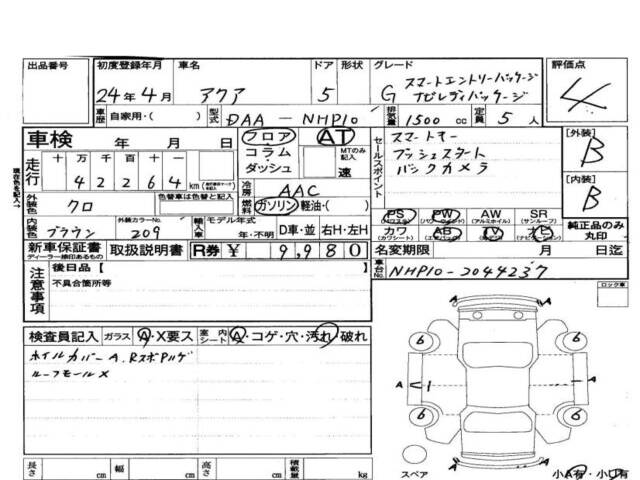 出品番号 初度登録年月 車名 ドア 形状 グレード 評価点
24年4月 アクア 5 G スマートエントリーパッケージ
ナビレディパッケージ 4
車歴 自家用・( ) 型式 DAA-NHP10 排気量 1500cc 定員 5人
車検 年 月 日 フロア AT スマートキー [外装]
走行 十 万 千 百 十 一 コラム MTのみ記入 セールスポイント プッシュスタート B
4 2 2 6 4 km ダッシュ 速 バックカメラ
冷房 AAC [内装]
外装色 クロ 色替車は色替と記入 燃料 ガソリン 軽油・( ) B
PS PW AW SR
(パワステ) (パワーウインド) (アルミホイル) (サンルーフ)
内装色 ブラウン 外装カラーNo. 209 輸入車 モデル年式 年・不明 D車・並 右H・左H カワ AB TV ナビ 純正品のみ丸印
(カワシート) (エアバッグ) (ナビゲーション)
新車保証書 取扱説明書 R券 ¥ 9,980 名変期限 月 日迄
ディーラー捺印あるもの
車台No. NHP10-3044237
注意事項 後日品【
不具合箇所等
ロック車
検査員記入 ガラス A・X要ス 室内シート A・コゲ・穴・汚れ・破れ
ホイルカバーA、RスポPハゲ
ルーフモールX
A A
6 6
A 1 A
6 6
A A
スペア 小A有・小U有
長さ cm 幅 cm 高さ cm 積載量 kg